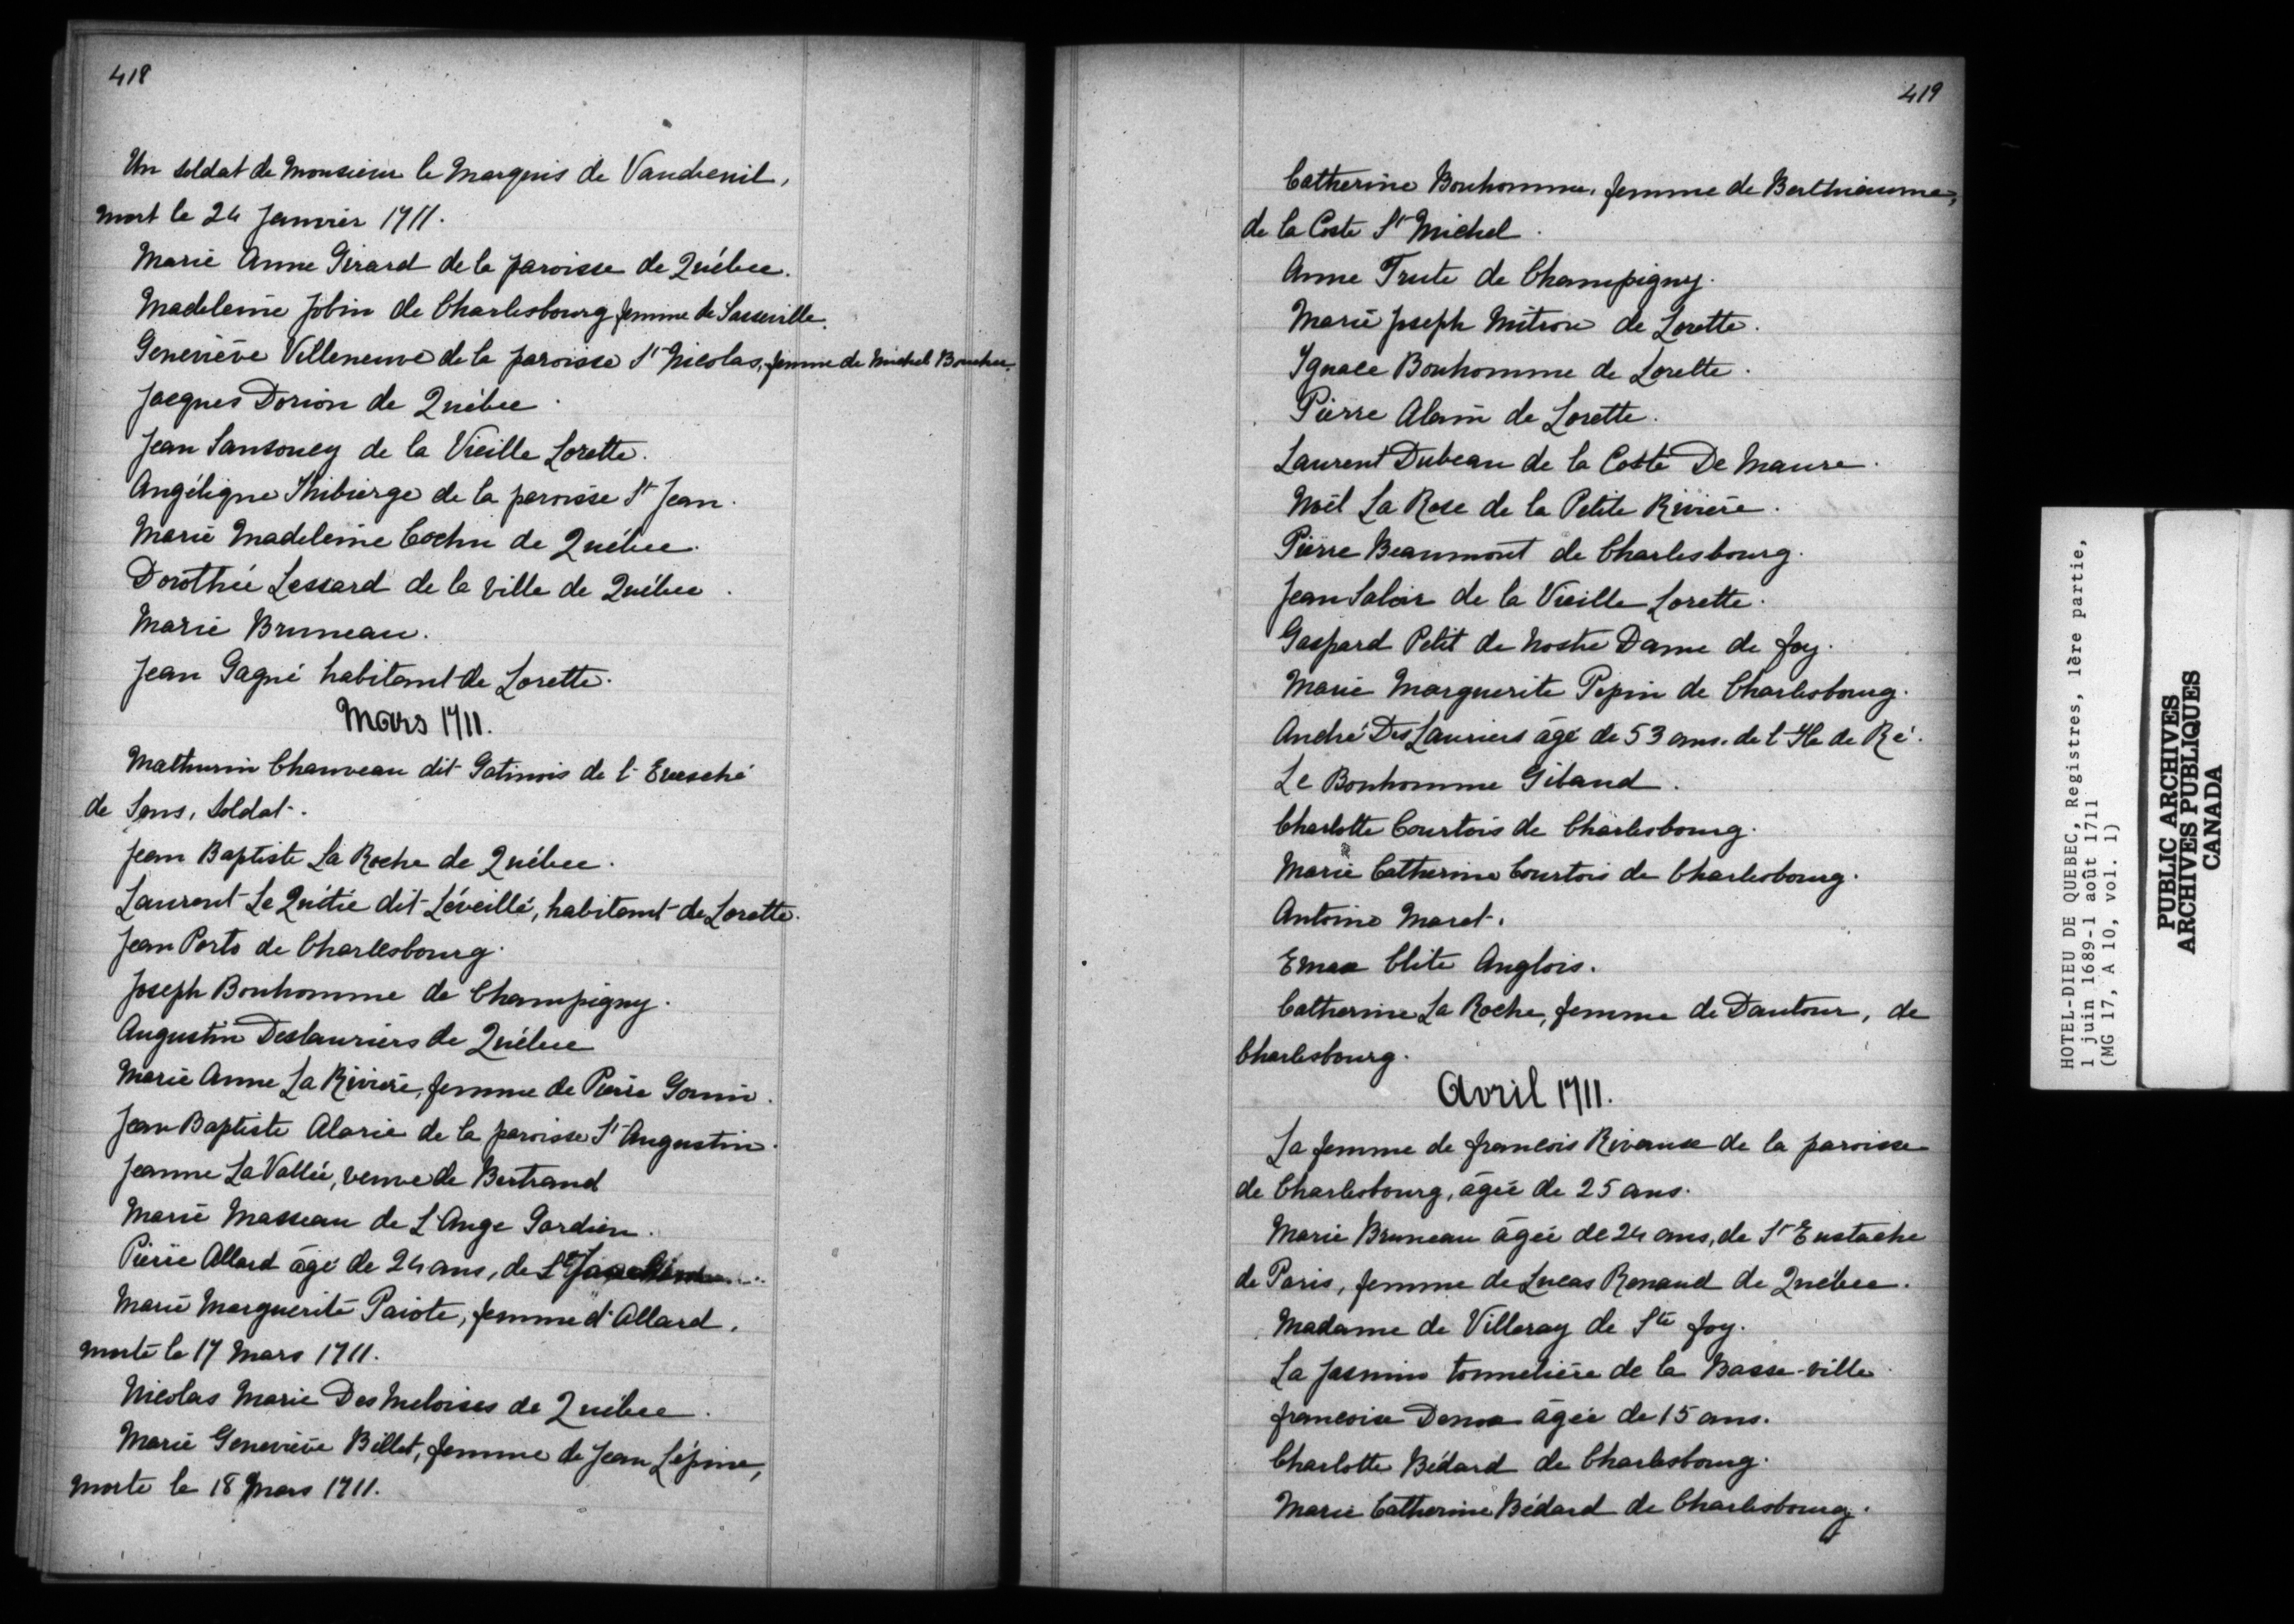 418
Un soldat de Monsieur le Marquis de Vaudreuil,
mort le 24 Janvier 1711.
Marie Anne Girard de la paroisse de Québec.
Madeleine Jobin de Charlesbourg femme de Sasseville.
Geneviève Villeneuve de la paroisse St Nicolas, femme de Michel Boucher.
Jacques Dorion de Québec.
Jean Sansoucy de la Vieille Lorette.
Angélique Thibierge de la paroisse St Jean.
Marie Madeleine Cochu de Québec.
Dorothée Lessard de la ville de Québec.
Marie Bruneau.
Jean Gagné habitant de Lorette.
Mars 1711.
Mathurin Chauveau dit Gatinois de l'Evesché
de Sens, soldat.
Jean Baptiste La Roche de Québec.
Laurent Le Quitié dit Léveillé, habitant de Lorette.
Jean Porto de Charlesbourg.
Joseph Bonhomme de Champigny.
Augustin Deslauriers de Québec
Marie Anne La Rivière, femme de Pierre Gomin.
Jean Baptiste Alarie de la paroisse St Augustin.
Jeanne La Vallée, veuve de Bertrand
Marie Masseau de L'Ange Gardien.
Pierre Allard âgé de 24 ans, de
Marie Marguerite Paiote, femme d'Allard,
morte le 17 Mars 1711.
Nicolas Marie Des Meloises de Québec.
Marie Geneviève Billet, femme de Jean Lépine,
morte le 18 Mars 1711.
419
Catherine Bonhomme, femme de Berthiaume,
de la Coste St Michel.
Anne Trute de Champigny.
Marie Joseph Mitron de Lorette.
Ignace Bonhomme de Lorette.
Pierre Alain de Lorette.
Laurent Dubeau de la Coste De Maure.
Noël La Rose de la Petite Rivière.
Pierre Beaumont de Charlesbourg.
Jean Saloir de la Vieille Lorette.
Gaspard Petit de Nostre Dame de foy.
Marie Marguerite Pepin de Charlesbourg.
André Des Lauriers âgé de 53 ans. de l'Ile de Ré.
Le Bonhomme Gibaud.
Charlotte Courtois de Charlesbourg.
Marie Catherine Courtois de Charlesbourg.
Antoine Maret.
Clite Anglois.
Catherine La Roche, femme de Dautour, de
Charlesbourg.
Avril 1711.
La femme de francois de la paroisse
de Charlesbourg, âgée de 25 ans.
Marie Bruneau âgée de 24 ans, de St Eustache
de Paris, femme de Lucas Renaud de Québec.
Madame de Villeray de Ste foy.
La Jasmin tonnelière de la Basse-ville
francoise âgée de 15 ans.
Charlotte Bédard de Charlesbourg.
Marie Catherine Bédard de Charlesbourg.
HOTEL-DIEU DE QUEBEC, Registres, 1ère partie,
1 juin 1689-1 août 1711
(MG 17, A 10, vol. 1)
PUBLIC ARCHIVES
ARCHIVES PUBLIQUES
CANADA